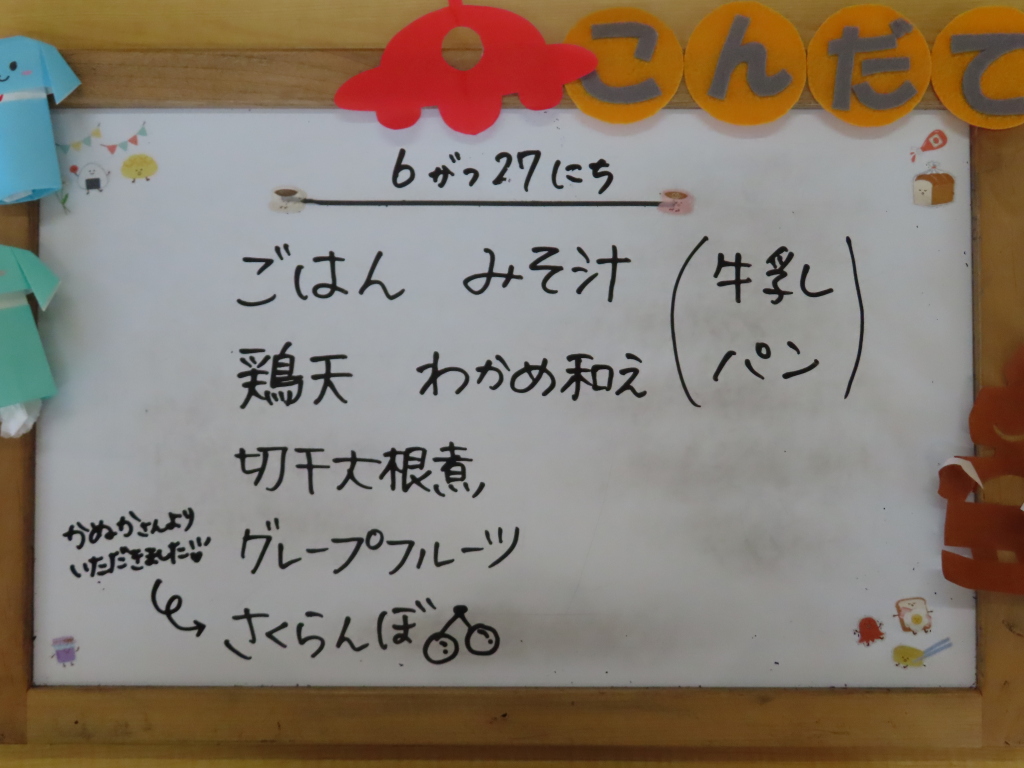 こんだて
6がつ27にち
ごはん みそ汁 (牛乳
パン)
鶏天 わかめ和え
切干大根煮
グレープフルーツ
かぬかさんより
いただきました
さくらんぼ